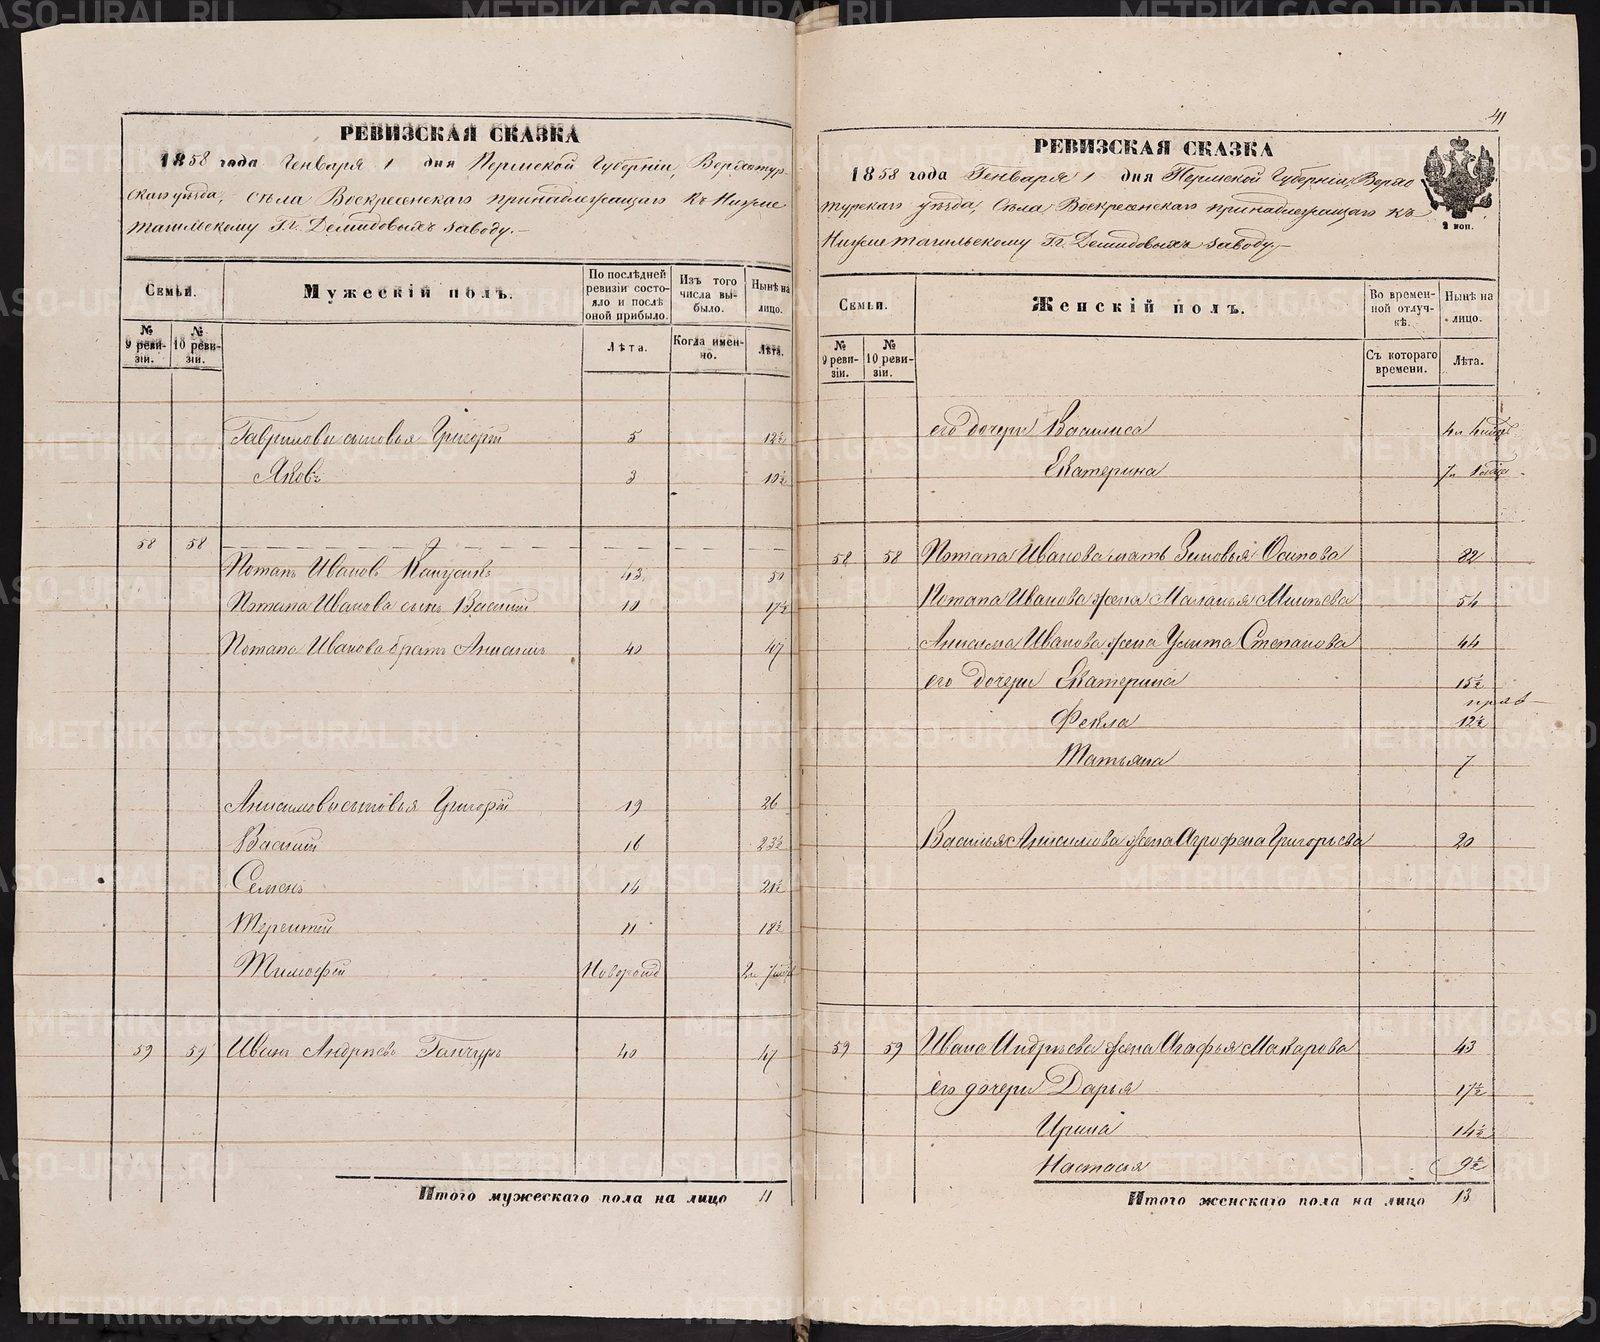 РЕВИЗСКАЯ СКАЗКА
1858 года Генваря 1 дня Пермской Губерніи, Верхотур-
скаго уѣзда, села Воскресенскаго принадлежащаго къ Нижне
тагильскому Гг. Демидовыхъ заводу.-
Семьи.
Мужескій полъ.
По послѣдней ревизіи состояло и послѣ оной прибыло.
Изъ того числа выбыло.
Нынѣ на лицо.
№ 9 ревизіи.
№ 10 ревизіи.
Лѣта.
Когда именно.
Лѣта.
Гавриловы сыновья Григорій 5 12½
Яковъ 3 10½
58 58
Потапъ Ивановъ 43 50
Потапа Иванова сынъ Василій 10 17½
Потапа Иванова братъ Анисимъ 40 47
Анисимовы сыновья Григорій 19 26
Василій 16 23½
Семенъ 14 21½
Терентій 11 18½
Тимофей Новорожд 2л 7мѣс
59 59 Иванъ Андреевъ Ганчуръ 40 47
Итого мужескаго пола на лицо 11
41
РЕВИЗСКАЯ СКАЗКА
1858 года Генваря 1 дня Пермской Губерніи, Верхо
турскаго уѣзда, Села Воскресенскаго принадлежащаго къ
Нижнетагильскому Гг. Демидовыхъ заводу.-
2 коп.
Семьи.
Женскій полъ.
Во временной отлучкѣ.
Нынѣ на лицо.
№ 9 ревизіи.
№ 10 ревизіи.
Съ котораго времени.
Лѣта.
его дочери Василиса
Екатерина
58 58 Потапа Иванова мать Зиновья Осипова 82
Потапа Иванова жена Маланья 54
Анисима Иванова жена Улита Степанова 44
его дочери Екатерина 15½
Фекла 12½
Татьяна 7
Василья Анисимова жена Агрофена Григорьева 20
59 59 Ивана Андреева жена Агафья Макарова 43
его дочери Дарья 17½
Ирина 14½
Настасья 9½
Итого женскаго пола на лицо 13
METRIKI.GASO-URAL.RU